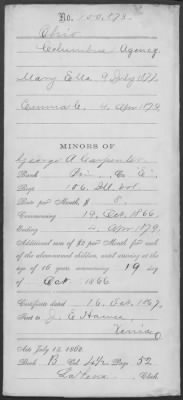 No. 100,873.
Ohio
Columbus Agency
Mary Etta, 9 July 1877.
Emma C, 4, Apr 1879.
MINORS OF
George A Carpenter
Rank Co.
Regt. 186. Ill. Vol.
Rate per Month, $ 8.
Commencing 19. Oct. 1866.
Ending 4, Apr 1879.
Additional sum of $2 per Month for each
of the above-named children, until arriving at the
age of 16 years commencing 19 day
of Oct 1866
Certificate dated 16. Oct. 1867.
Sent to J. C.
Xenia O
Act July 14, 1862.
Book B Vol. Page 52
Clerk.